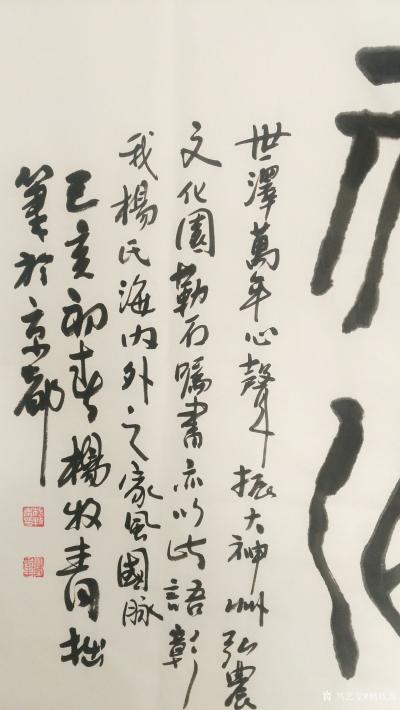 世澤萬年心聲振大神州弘農
文化園勒石囑書亦以此語彰
我楊氏海內外之家風國脈
己亥初春楊牧青拙
筆於京都